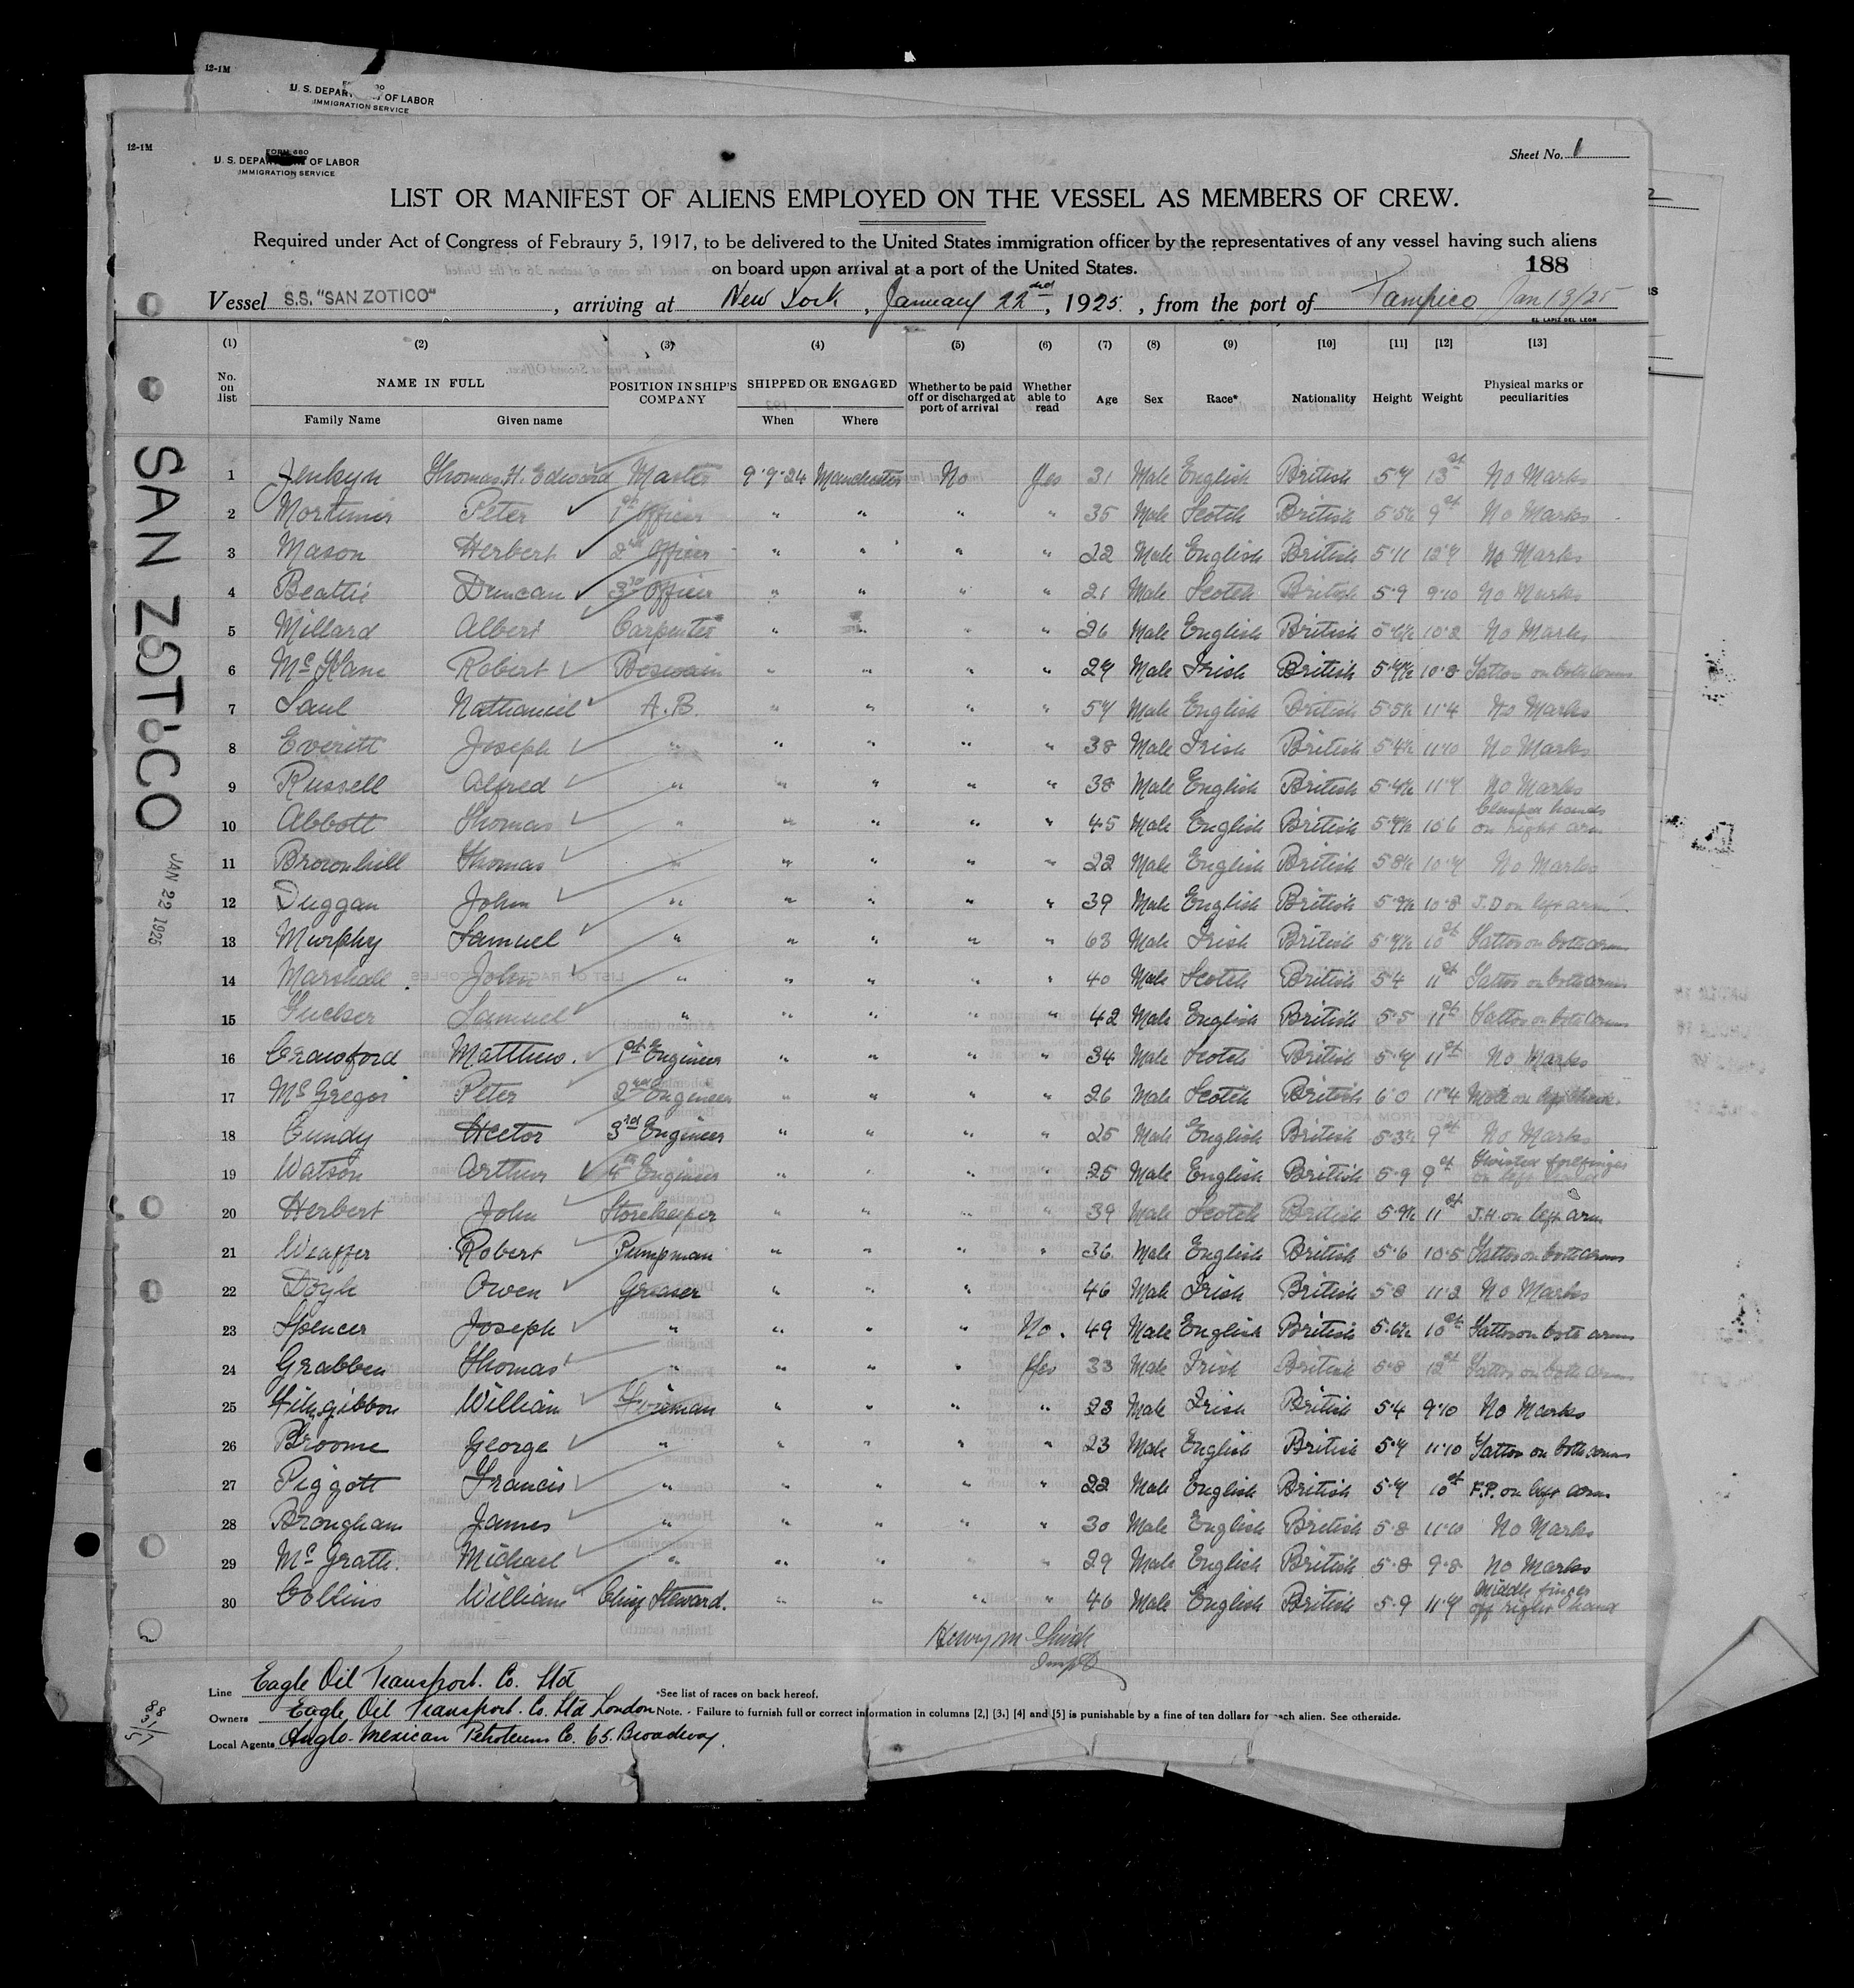 12-1M
U. S. DEPARTMENT OF LABOR
IMMIGRATION SERVICE
12-1M
FORM 680
U. S. DEPARTMENT OF LABOR
IMMIGRATION SERVICE
Sheet No. 1
LIST OR MANIFEST OF ALIENS EMPLOYED ON THE VESSEL AS MEMBERS OF CREW.
Required under Act of Congress of Febraury 5, 1917, to be delivered to the United States immigration officer by the representatives of any vessel having such aliens
on board upon arrival at a port of the United States.
188
Vessel S.S. "SAN ZOTICO", arriving at New York, January 22nd, 1925., from the port of Tampico Jan 13/25
EL LAPIZ DEL LEON
(1) (2) (3) (4) (5) (6) (7) (8) (9) [10] [11] [12] [13]
No. on list NAME IN FULL Family Name Given name POSITION IN SHIP'S COMPANY SHIPPED OR ENGAGED When Where Whether to be paid off or discharged at port of arrival Whether able to read Age Sex Race* Nationality Height Weight Physical marks or peculiarities
1 Jenkyn Thomas. H. Edward Master 9·9·24 Manchester No Yes 31 Male English British 5·7 13st No Marks
2 Mortimer Peter 1st Officer " " " " 35 Male Scotch British 5·5½ 9st No Marks
3 Mason Herbert 2nd Officer " " " " 22 Male English British 5·11 12·7 No Marks
4 Beattie Duncan 3rd Officer " " " " 21 Male Scotch British 5·9 9·10 No Marks
5 Millard Albert Carpenter " " " " 26 Male English British 5·6½ 10·2 No Marks
6 McKane Robert Boswain " " " " 27 Male Irish British 5·7½ 10·8 Tattoo on both arms
7 Saul Nathaniel A.B. " " " " 57 Male English British 5·5½ 11·4 No Marks
8 Everitt Joseph " " " " " 38 Male Irish British 5·4½ 11·10 No Marks
9 Russell Alfred " " " " " 38 Male English British 5·4½ 11·7 No Marks
10 Abbott Thomas " " " " " 45 Male English British 5·7½ 10·6 Clasped hands on right arm
11 Brownhill Thomas " " " " " 22 Male English British 5·8½ 10·7 No Marks
12 Duggan John " " " " " 39 Male English British 5·7½ 10·8 J.D on left arm
13 Murphy Samuel " " " " " 63 Male Irish British 5·7½ 10st Tattoo on both arms
14 Marshall John " " " " " 40 Male Scotch British 5·4 11st Tattoo on both arms
15 Tucker Samuel " " " " " 42 Male English British 5·5 11st Tattoo on both arms
16 Crawford Matthew. 1st Engineer " " " " 34 Male Scotch British 5·7 11st No Marks
17 McGregor Peter 2nd Engineer " " " " 26 Male Scotch British 6·0 11·4 Mole on left cheek.
18 Cundy Hector 3rd Engineer " " " " 25 Male English British 5·3½ 9st No Marks
19 Watson Arthur 4th Engineer " " " " 25 Male English British 5·9 9st Twisted forefinger on left hand
20 Herbert John Storekeeper " " " " 39 Male Scotch British 5·7½ 11st J.H. on left arm
21 Weaffer Robert Pumpman " " " " 36 Male English British 5·6 10·5 Tattoo on both arms
22 Doyle Owen Greaser " " " " 46 Male Irish British 5·8 11·2 No Marks
23 Spencer Joseph " " " " No. 49 Male English British 5·6½ 10st Tattoo on both arms
24 Grabben Thomas " " " " Yes 33 Male Irish British 5·8 12st Tattoo on both arms
25 Fitzgibbon William Fireman " " " " 23 Male Irish British 5·4 9·10 No Marks
26 Broome George " " " " " 23 Male English British 5·7 11·10 Tattoo on both arms
27 Piggott Francis " " " " " 22 Male English British 5·7 10st F.P. on left arm
28 Brougham James " " " " " 30 Male English British 5·8 11·10 No Marks
29 McGrath. Michael " " " " " 29 Male English British 5·8 9·8 No Marks
30 Collins William Chief Steward. " " " " 46 Male English British 5·9 11·7 Middle finger off right hand
Henry M
Line Eagle Oil Transport. Co. Ltd
*See list of races on back hereof.
Owners Eagle Oil Transport. Co. Ltd London
Note. - Failure to furnish full or correct information in columns [2,] [3,] [4] and [5] is punishable by a fine of ten dollars for each alien. See otherside.
Local Agents Anglo-Mexican Petroleum Co. 65. Broadway.
SAN ZOTICO
JAN 22 1925